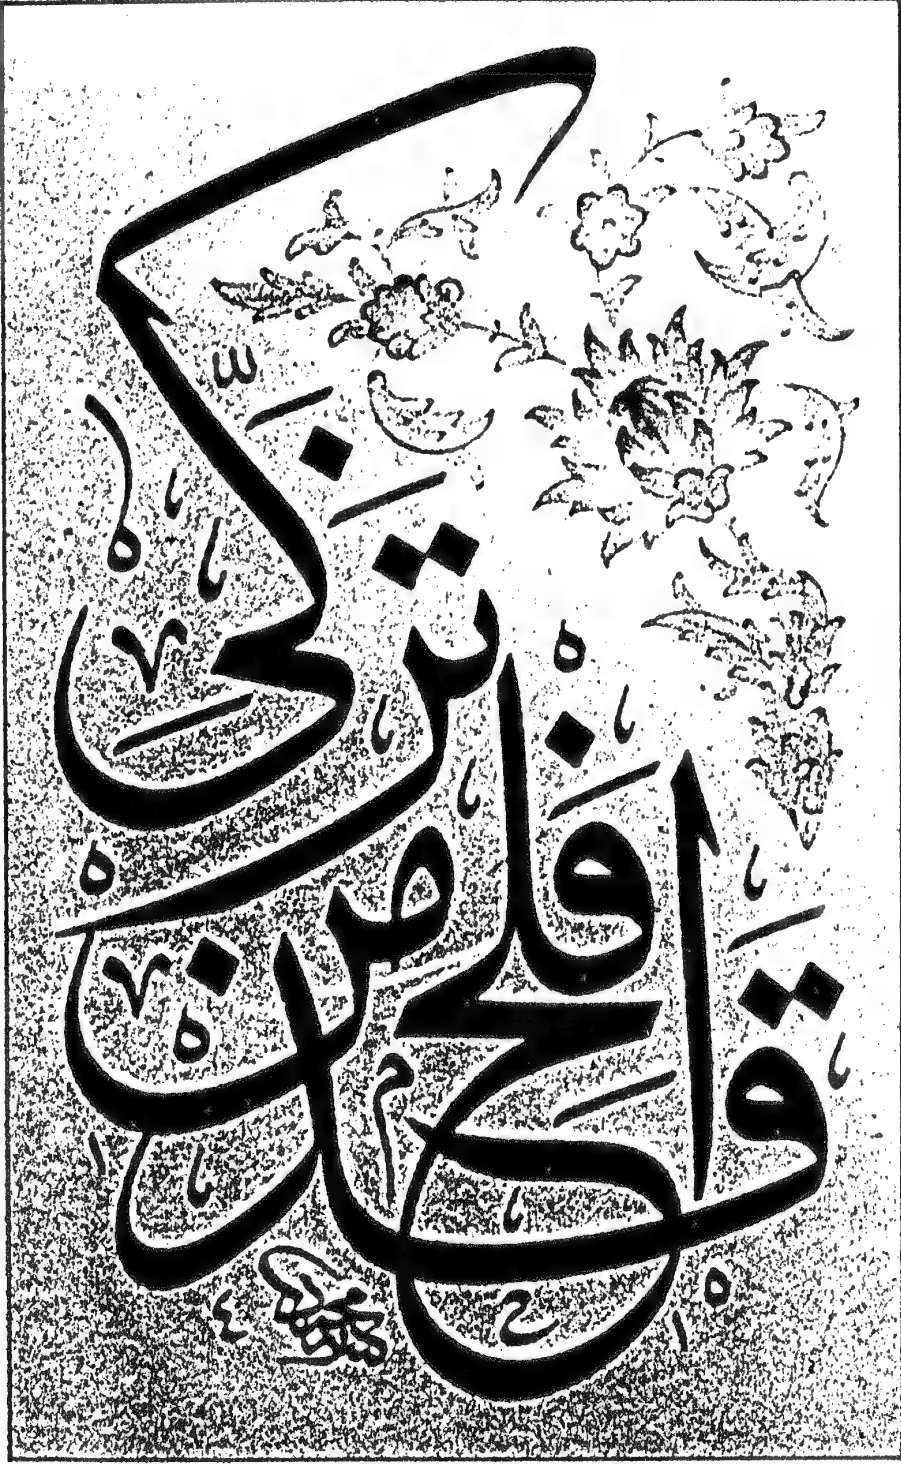 قَدْ أَفْلَحَ مَنْ تَزَكَّى